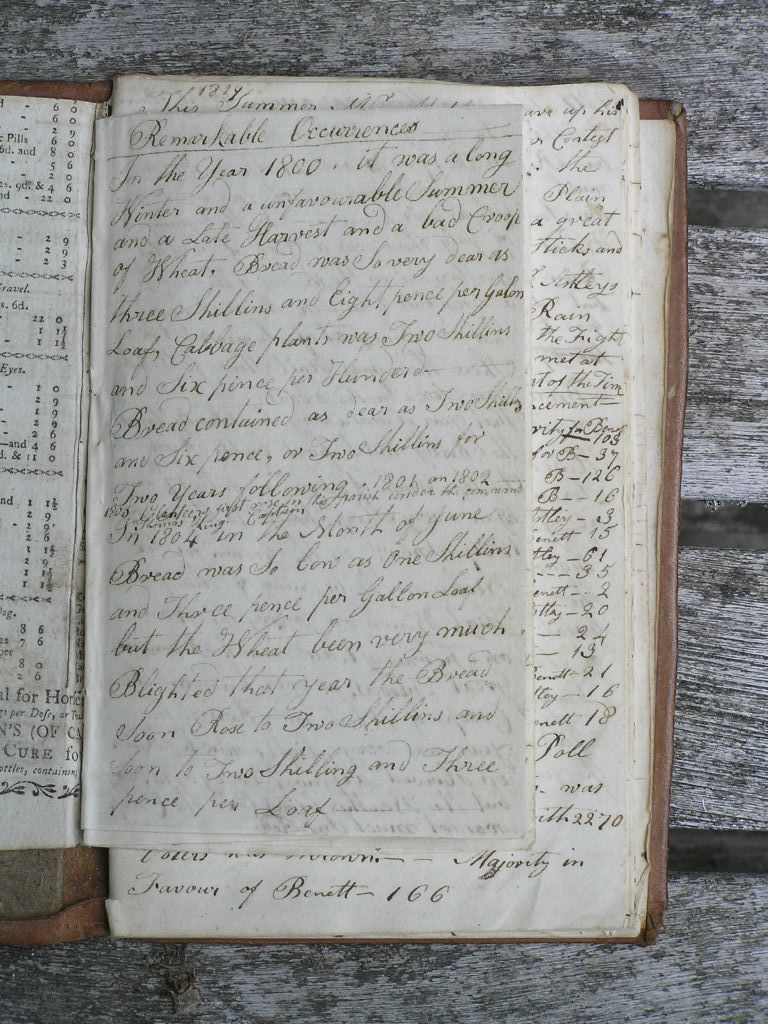 - 6 0
- 6 0
- 2 9
Pills 6 0
6d. and 8 0
- 5 6
- 2 0
2s. 9d. & 4 6
nd - 22 0
- 2 9
- 2 9
- 2 3
Gravel.
s. 6d.
- 22 0
- 1 1½
- 1 1½
Eyes.
- 1 0
- 2 9
- 2 9
- 2 6
—and 4 6
d. & 11 0
nd 1 1½
Dog.
8 6
7 6
per
8 0
2 6
al for Horses
per Dose, or
N'S (OF
CURE fo
ottles, containing
1819
This Summer Mr
Remarkable Occurrences
In the Year 1800. it was a long
Winter and a unfavourable Summer
and a Late Harvest and a bad Croop
of Wheat. Bread was So very dear as
three Shillins and Eight pence per Galon
Loaf, Cabbage plants was Two Shillins
and Six pence per Hunderd—
Bread contained as dear as Two Shillins
and Six pence, or Two Shillins for
Two Years following 1801 an 1802
1803 Volenteers first arose in this parish under the command
Thomas King Captain
In 1804 in the Month of June
Bread was So low as One Shillins
and Three pence per Gallon Loaf
but the Wheat been very much
Blighted that year the Bread
Soon Rose to Two Shillins and
Soon to Two Shilling and Three
pence per Loaf
ave up his
Contest
the
Plain
a great
Sticks and
Astleys
Rain
the Fight
met at
t of the Tim
cement
for Benett
103
for B- 37
B- 126
B- 16
Astley - 3
Benett 15
tley - 61
- - - 35
enett - 2
tley - 20
— 24
— 13
Benett - 21
tley - 16
enett 18
Poll
was
with 2270
Voters was thrown — Majority in
Favour of Benett - 166